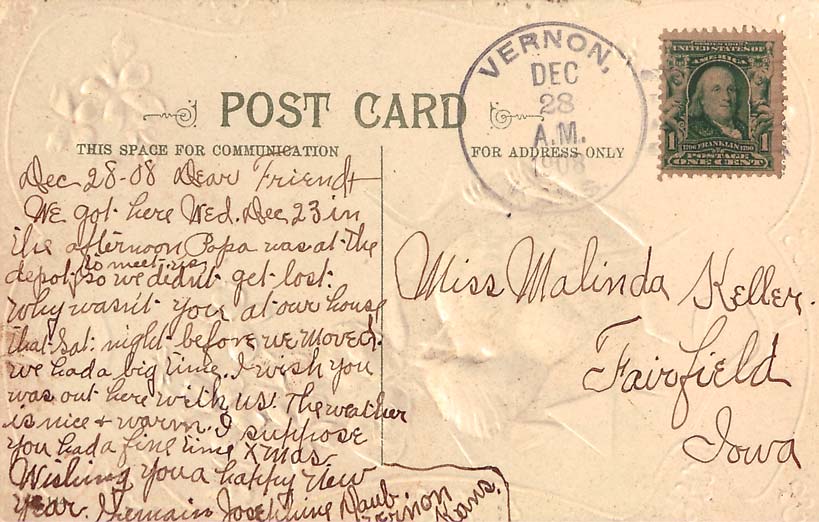 VERNON,
DEC
28
A.M.
1908
KANS.
UNITED STATES OF
AMERICA
1 1
1706 FRANKLIN 1790
POSTAGE
ONE CENT
POST CARD
THIS SPACE FOR COMMUNICATION
FOR ADDRESS ONLY
Dec 28-08 Dear Friend
We got here Wed. Dec 23 in
the afternoon Papa was at the
depot to meet us so we didn't get lost.
Why wasn't you at our house
that Sat. night before we moved.
we had a big time. I wish you
was out here with us. The weather
is nice + warm. I suppose
you had a fine time Xmas
Wishing you a happy New
Year. I remain Josephine Daub
Vernon
Kans.
Miss Malinda Keller.
Fairfield
Iowa